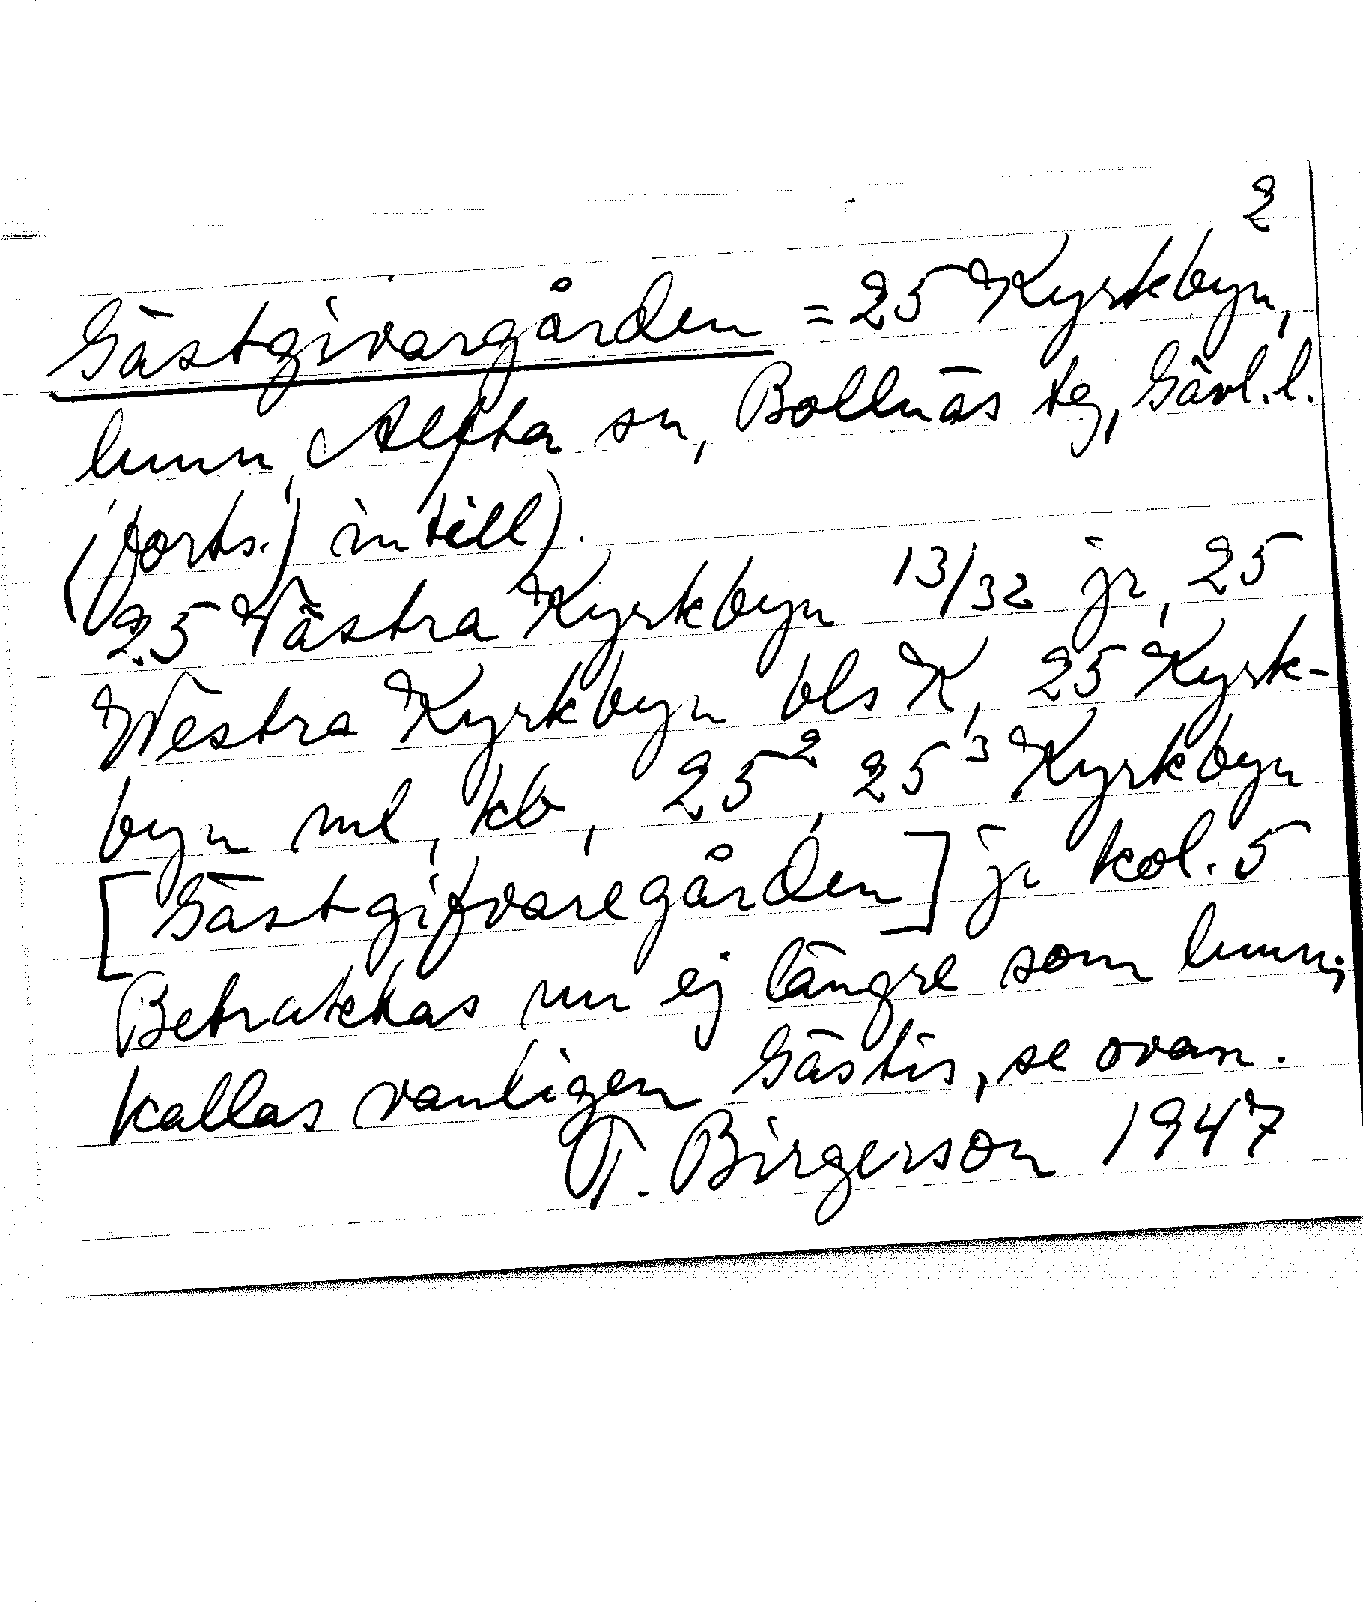 2
Gästgivargården = 25 Kyrkbyn,
hmn, Alfta sn, Bollnäs tg, Gävl.l.
(forts.) intill).
25 Västra Kyrkbyn 13/32 jr, 25
Westra Kyrkbyn bls K, 25 Kyrk-
byn ml, kb, 25², 25³ Kyrkbyn
[Gästgifvaregården] jr kol. 5
Betraktas nu ej längre som hmn;
kallas vanligen Gästis, se ovan.
T. Birgerson 1947